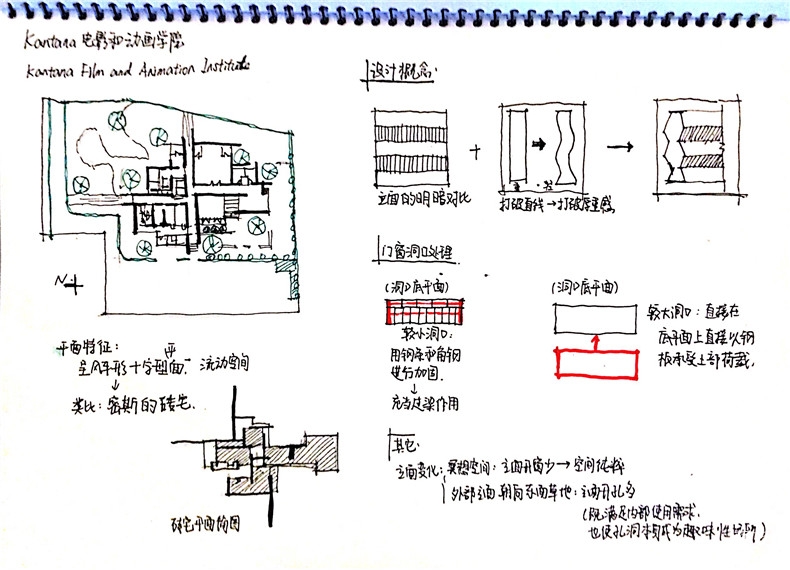 Kantana 电影和动画学院
Kantana Film and Animation Institute
设计概念.
立面的明暗对比
打破直线→打破厚重感
门窗洞口处理
(洞口底平面)
较小洞口:
用钢条和角钢
进行加固.
↓
充当过梁作用
(洞口底平面)
较大洞口: 直接在
底平面上直接以钢
板承受上部荷载.
N
平面特征:
呈风车形十字型平面. 流动空间
↓
类比: 密斯的砖宅.
砖宅平面简图
其它
立面变化: 冥想空间: 立面开窗少→空间
外部立面朝向东面草地: 立面开孔多
(既满足内部使用需求.
也使孔洞本身成为趣味性场所)